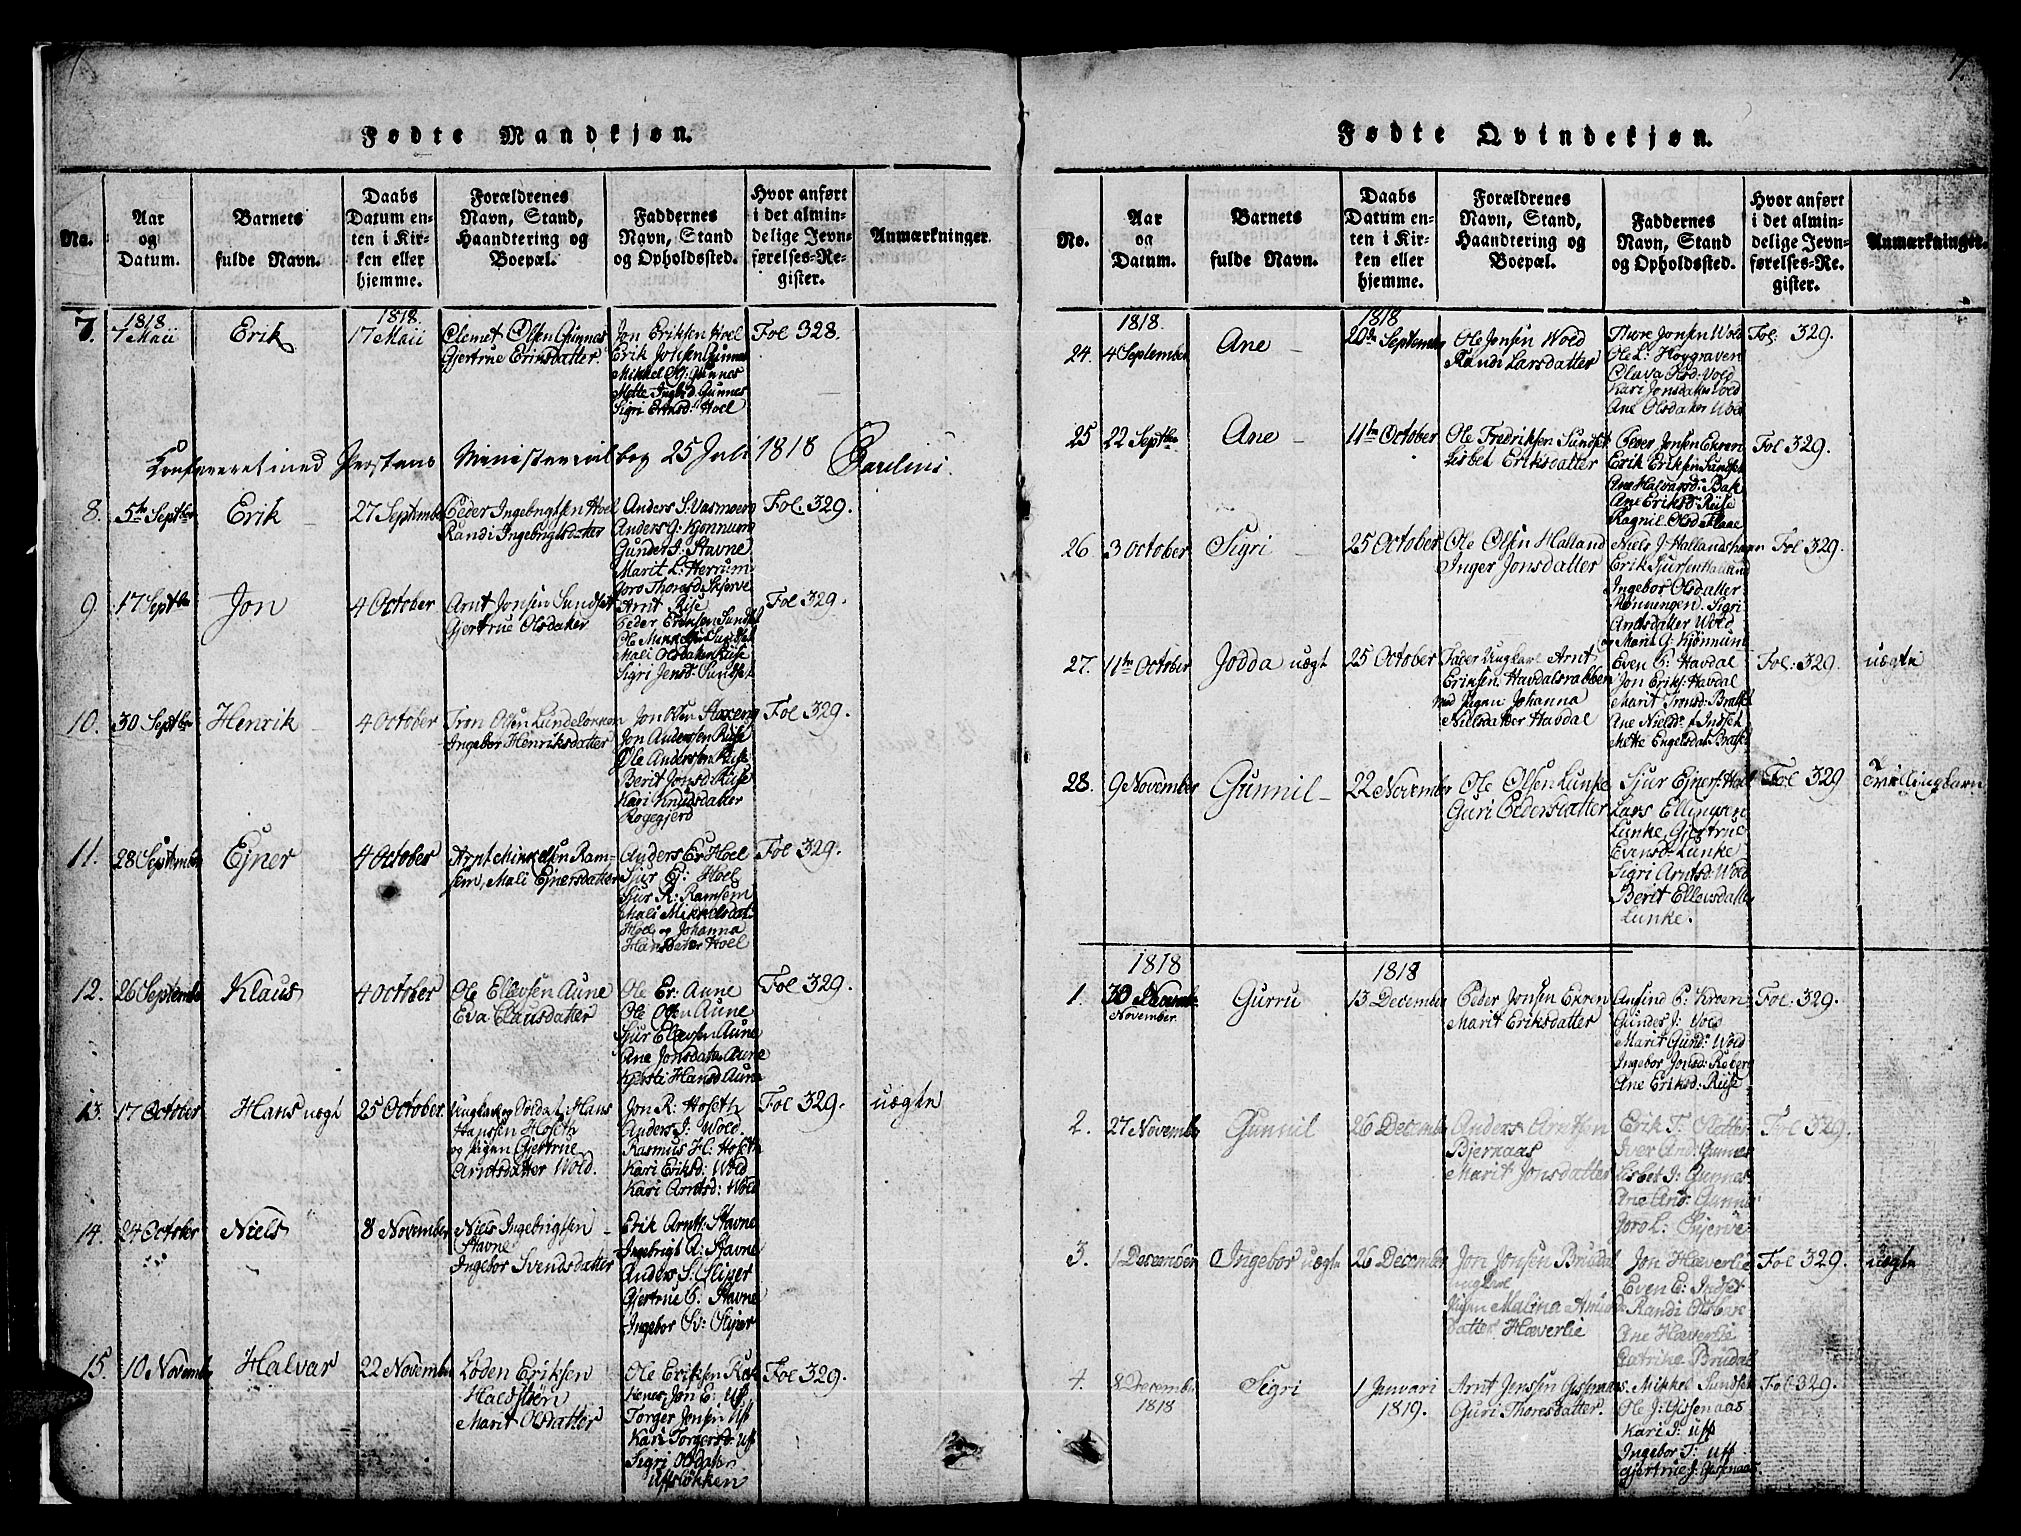 7.
Fødte Mandkjøn.
No.
Aar
og
Datum.
Barnets
fulde Navn.
Daabs
Datum en-
ten i Kir-
ken eller
hjemme.
Forældrenes
Navn, Stand,
Haandtering og
Boepæl.
Faddernes
Navn, Stand
og Opholdssted.
Hvor anført
i det almin-
delige Jevn-
førelses-Re-
gister.
Anmærkninger.
7.
1818
7 Maii
Erik
1818
17 Maii
Clemet Olsen Gunnes
Gjertrue Eriksdatter
Jon Eriksen Hoel
Erik Johsen Gunnes
Mikkel Gunnes
Mette Gunnes
Sigri Eriksd: Hoel
Fol 328.
Confereret med Præstens Ministerialbog 25 Juli 1818
8.
5te Septber
Erik
27 September
Peder Ingebrigtsen Hoel
Randi Ingebrigtsdatter
Anders S. Vasmoen
Anders G: Kjønnum
Gunder J: Stavne
Marit L: Herrum
Goro Thoresd: Skjerve
Fol. 329.
9.
17 Septbr
Jon
4 October
Arnt Jonsen Sundset
Gjertrue Olsdatter
Arnt Riise
Peder Eriksen Sundset
Ole Mikkelsen Sundset
Mali Olsdatter Riise
Sigri Jensd: Sundset
Fol 329.
10.
30 Septbr
Henrik
4 October
Tron Olsen Lundeløkken
Ingebor Henriksdatter
Jon Olsen Hoxeng
Jon Andersen Riise
Ole Andersen Riise
Berit Jonsd: Riise
Kari Knudsdatter
Rogegjerd
Fol 329.
11.
28 September
Ejner
4 October
Arnt Mikkelsen Ram-
sem, Mali Ejnersdatter
Anders Er: Hoel
Sjur E: Hoel
Sjur R: Ramsem
Mali Mikkelsdat:
Hoel og Johanna
Hansdater Hoel
Fol 329.
12.
26 September
Klaus
4 October
Ole Ellevsen Aune
Eva Clausdatter
Ole Er: Aune
Ole Olsen Aune
Sjur Ellevsen Aune
Ane Jonsdatr Aune
Kjersti Hansd: Aune
Fol 329.
13.
17 October
Hans uægt
25 October.
Ungkarl og Soldat Hans
Hanssen Hoseth
og Pigen Gjertrue
Arntsdatter Wold.
Jon R: Hoseth
Anders J: Wold.
Rasmus H: Hoseth
Kari Eriksd: Wold
Kari Arntsd: Wold
Fol 329.
uægte
14.
24 October
Niels
8 November
Niels Ingebrigtsen
Stavne
Ingebor Svendsdatter
Erik Arnts: Stavne
Ingebrigt A: Stavne
Anders S: Sliper
Gjertrue E: Stavne
Ingebor Sv: Sliper
15.
10 November
Halvar
22 November
Loden Eriksen
Haldstøen
Marit Olsdatter
Ole Eriksen
Jon E. Uff
Torger Jonsen Uff
Kari Torgersd: Uff
Sigri Olsdater
Uffsløkken
Fol 329.
7.
Fødte Qvindekjøn.
No.
Aar
og
Datum.
Barnets
fulde Navn.
Daabs
Datum en-
ten i Kir-
ken eller
hjemme.
Forældrenes
Navn, Stand,
Haandtering og
Boepæl.
Faddernes
Navn, Stand
og Opholdssted.
Hvor anført
i det almin-
delige Jevn-
førelses-Re-
gister.
Anmærkninger.
24.
1818.
4 September
Ane
1818
20de September
Ole Jonsen Wold
Randi Larsdatter
Thore Jonsen Wold
Ole L: Høygraven
Olava Wold
Kari Jonsdater Wold
Ane Olsdater Wold
Fol. 329.
25
22 Septbr
Ane
11te October
Ole Fredriksen Sundset
Lisbet Eriksdatter
Peder Jonsen Ekren
Erik Eriksen Sundset
Ane Halvarsd: Bak
Ane Eriksd: Riise
Ragnil Olsd: Flaae
Fol 329.
26
3 October
Sigri
25 October
Ole Olsen Halland
Inger Jonsdatter
Niels J: Hallandshaugen
Erik Sjursen Halland
Ingebor Olsdatter
Rønningen Sigri
Arntsdatter Wold
og Marit G: Kjønnum
Fol 329.
27.
11te October
Jodda uægt
25 October
Fader Ungkarl Arnt
Eriksen Havdalsrabben
med Pigen Johanna
Nielsdatter Havdal
Even E: Havdal
Jon Eriks: Havdal
Marit Tronsd: Brattset
Ane Nielsd: Indset
Mette Engelsdat: Bratset
Fol: 329.
uægte
28.
9 November
Gunnil
22 November
Ole Olsen Lunke
Guri Pedersdatter
Sjur Ejners: Hoel
Lars Ellingsen
Lunke, Gjertrue
Evensd: Lunke
Sigri Arntsd: Wold
Berit Ellevsdatter
Lunke.
Fol 329
Tvillingbarn
1.
1818
30
November
Gurru
1818
13 December
Peder Jonsen Ekren
Marit Eriksdatter
Amund E: Kroen
Gunder J: Wold
Marit Gund: Wold
Ingebor Jonsd: Reberg
Ane Eriksd: Riise
Fol. 329.
2.
27 November
Gunnil
26 December
Anders Arntsen
Bjernaas
Marit Jonsdatter
Erik T. Sletten
Iver And: Gunnes
Lisbet J: Gunnes
Ane And: Gunnes
Joro L: Skjerve
Fol 329.
3.
1 December
Ingebor uægte
26 December
Jon Jonsen Brudal
ungkarl
Pigen Malina Amunds
datter Hæverlie
Jon Hæverlie
Even E: Indset
Randi Olsd:
Ane Hæverlie
Catrina Brudal
Fol 329.
uægte
4.
8 December
1818
Sigri
1 Januari
1819.
Arnt Jenssen Gisenaas.
Guri Thoresdatter.
Mikkel Sundset
Ole J: Gisenaas
Kari J: Uff
Ingebor T: Uff
Gjertrue J: Gisenaas.
Fol 329.